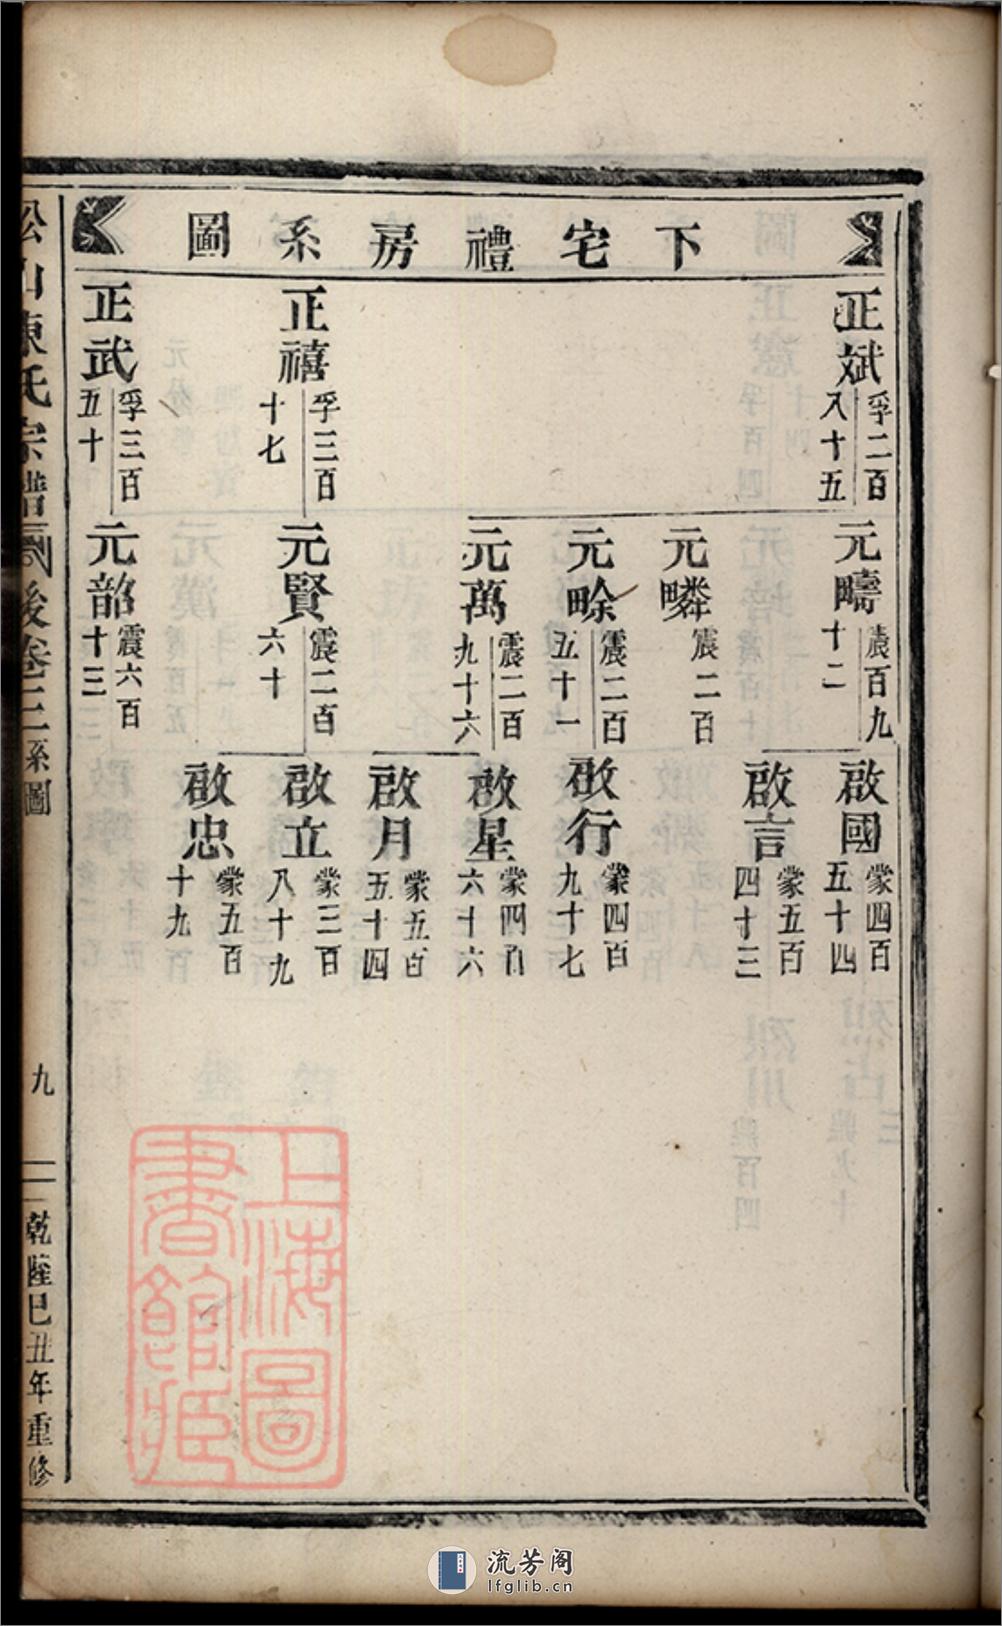 下宅禮房系圖
正斌
孚二百
八十五
正禧
孚三百
十七
正武
孚三百
五十
元疇
震百九
十二
元疄
震二百
元畭
震二百
五十一
元萬
震二百
九十六
元賢
震二百
六十
元韶
震六百
十三
啟國
蒙四百
五十四
啟言
蒙五百
四十三
啟行
蒙四百
九十七
啟星
蒙四百
六十六
啟月
蒙五百
五十四
啟立
蒙三百
八十九
啟忠
蒙五百
十九
松山陳氏宗譜
後卷三系圖
九
乾隆己丑年重修
上海圖書館藏
流芳阁
lfglib.cn